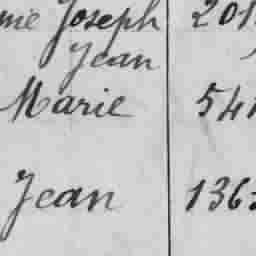 Joseph 201
Jean
Marie 541
Jean 136